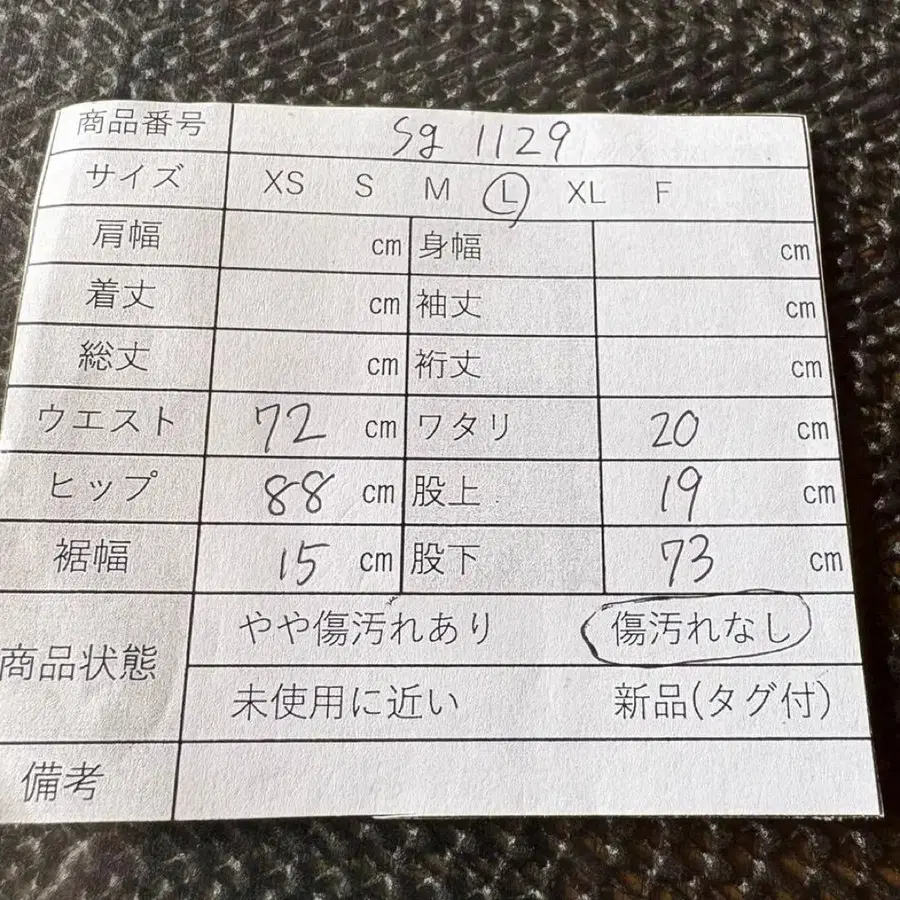 商品番号 Sg 1129
サイズ XS S M L XL F
肩幅 cm 身幅 cm
着丈 cm 袖丈 cm
総丈 cm 裄丈 cm
ウエスト 72 cm ワタリ 20 cm
ヒップ 88 cm 股上 19 cm
裾幅 15 cm 股下 73 cm
商品状態 やや傷汚れあり 傷汚れなし
未使用に近い 新品(タグ付)
備考